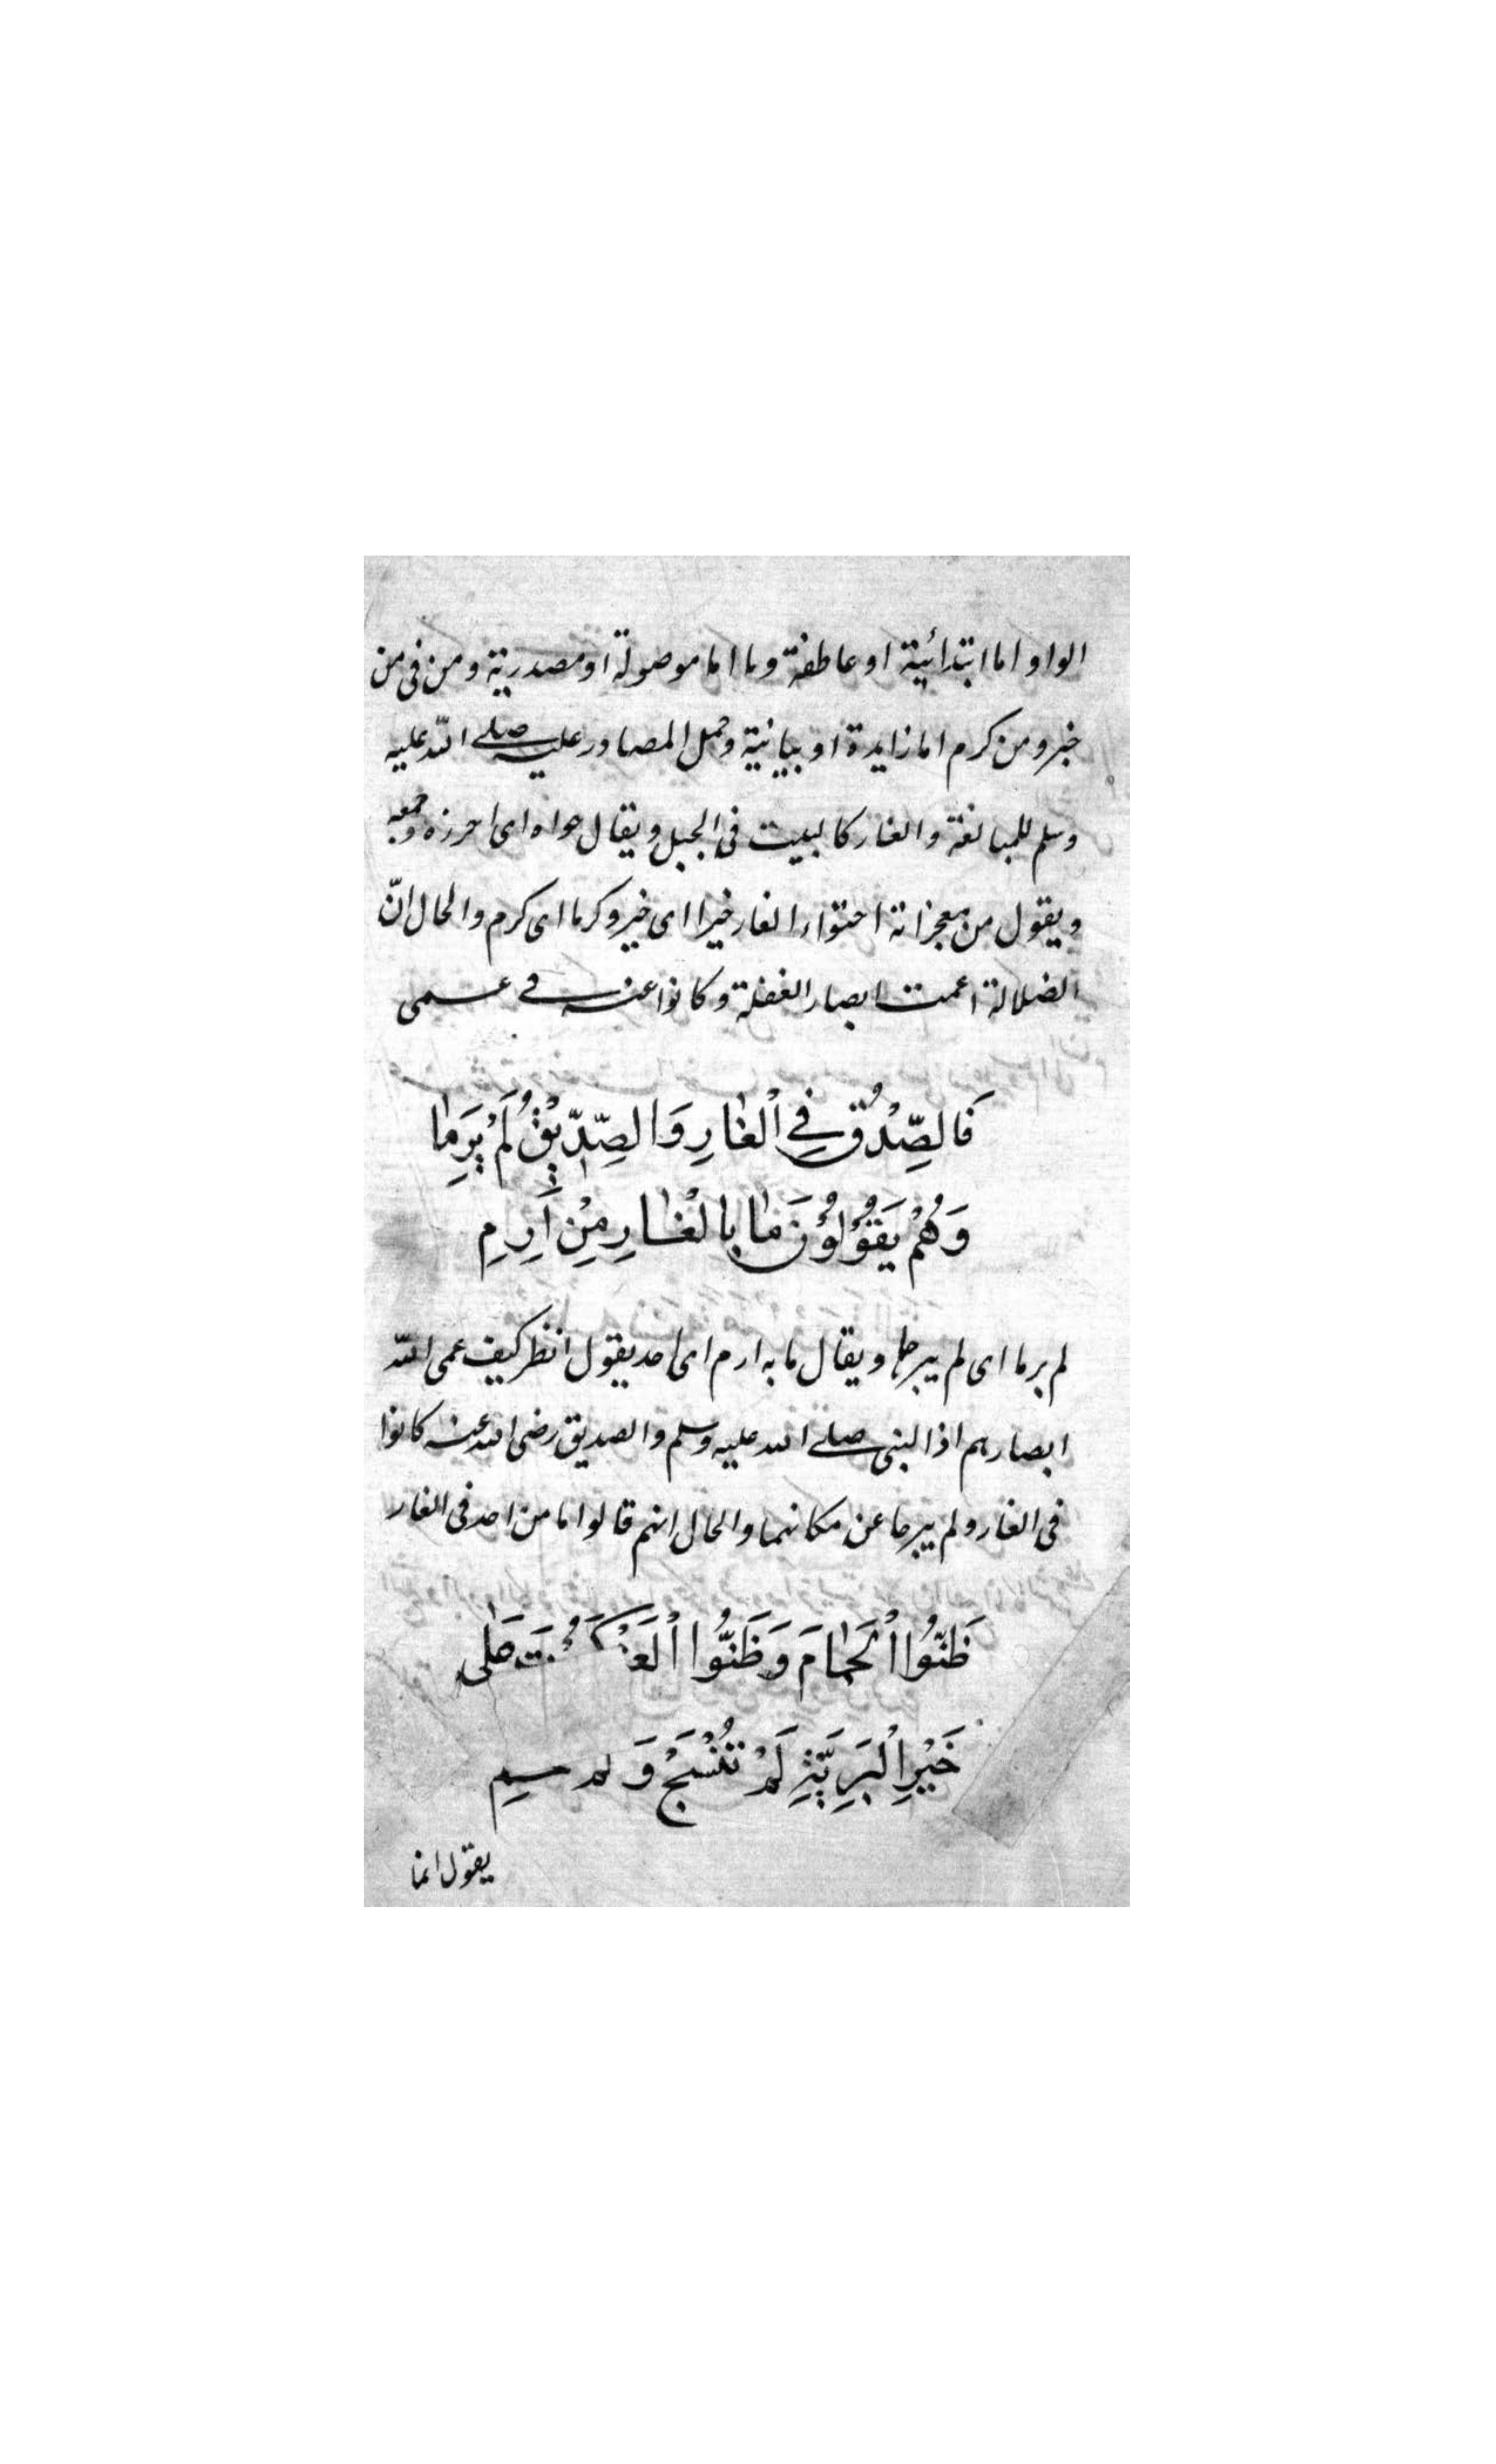 الواو اما ابتدائية او عاطفة وما اما موصولة او مصدرية ومن فى من
خير ومن كرم اما زايدة او بيانية وحمل المصادر عليه صلى الله عليه
وسلم للمبالغة والغار كالبيت فى الجبل ويقال حواه اى احرزه وجمعه
ويقول من معجزاته احتواء الغار خيرا اى خير وكرما اى كرم والحال انّ
الضلالة اعمت ابصار الغفلة وكانوا عنه فى عمى
فَالصِّدْقُ فِي الْغَارِ وَالصِّدِّيْقُ لَمْ يَرِمَا
وَهُمْ يَقُوْلُوْنَ مَا بِالْغَارِ مِنْ اَرِمِ
لم يرما اى لم يبرحا ويقال ما به ارم اى احد يقول انظر كيف عمى الله
ابصارهم اذ النبى صلى الله عليه وسلم والصديق رضى الله عنه كانوا
فى الغار ولم يبرحا عن مكانهما والحال انهم قالوا ما من احد فى الغار
ظَنُّوا الْحَمَامَ وَظَنُّوا الْعَنْكَبُتَ عَلٰى
خَيْرِ الْبَرِيَّةِ لَمْ تَنْسُجْ وَلم
يقول انما